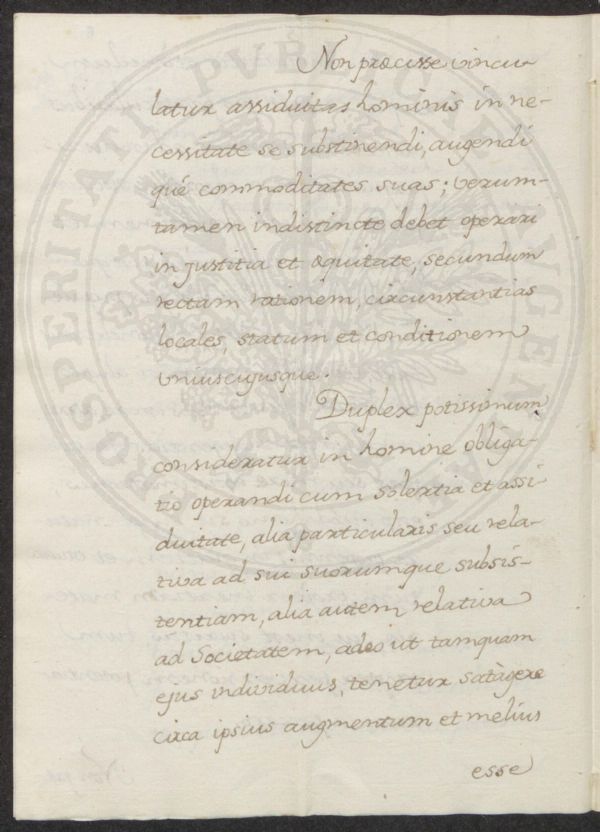 Non præcisse vincu-
latur assiduitas hominis in ne-
cessitate se substinendi, augendi
qué commoditates suas; verum-
tamen indistincte debet operari
in justitia et æquitate, secundum
rectam rationem, circunstantias
locales, statum et conditionem
uniuscujusque.
Duplex potissimum
consideratur in homine obliga-
tio operandi cum solertia et assi-
duitate, alia particularis seu rela-
tiva ad sui suorumque subsis-
tentiam, alia autem relativa
ad Societatem, adeo ut tamquam
ejus individuus, tenetur satàgere
circa ipsius augmentum et melius
esse
PROSPERITATI PVBLICÆ AVGENDÆ